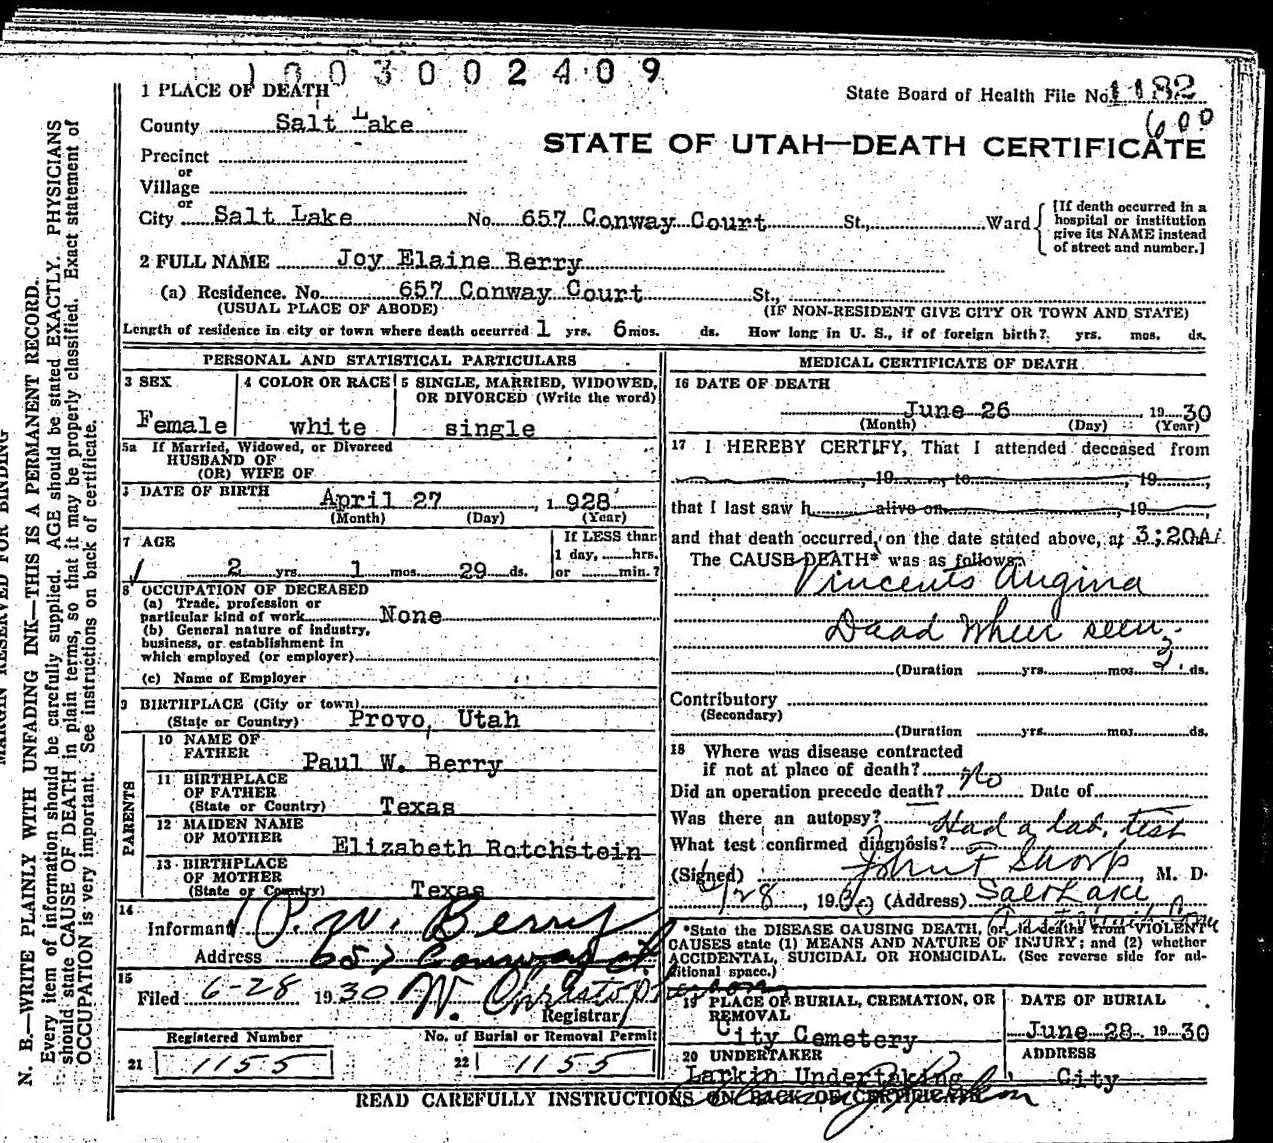 1003002409
1 PLACE OF DEATH
State Board of Health File No. 1182
600
County Salt Lake
STATE OF UTAH—DEATH CERTIFICATE
Precinct
or
Village
or
City Salt Lake No. 657 Conway Court St., Ward
[If death occurred in a
hospital or institution
give its NAME instead
of street and number.]
2 FULL NAME Joy Elaine Berry
(a) Residence. No. 657 Conway Court St.,
(USUAL PLACE OF ABODE) (IF NON-RESIDENT GIVE CITY OR TOWN AND STATE)
Length of residence in city or town where death occurred 1 yrs. 6 mos. ds. How long in U. S., if of foreign birth? yrs. mos. ds.
PERSONAL AND STATISTICAL PARTICULARS
3 SEX
Female
4 COLOR OR RACE
white
5 SINGLE, MARRIED, WIDOWED,
OR DIVORCED (Write the word)
single
5a If Married, Widowed, or Divorced
HUSBAND OF
(OR) WIFE OF
DATE OF BIRTH April 27, 1928
(Month) (Day) (Year)
7 AGE
2 yrs. 1 mos. 29 ds.
If LESS than
1 day, hrs.
or min.?
8 OCCUPATION OF DECEASED
(a) Trade, profession or
particular kind of work None
(b) General nature of industry,
business, or establishment in
which employed (or employer)
(c) Name of Employer
9 BIRTHPLACE (City or town)
(State or Country) Provo, Utah
PARENTS
10 NAME OF
FATHER
Paul W. Berry
11 BIRTHPLACE
OF FATHER
(State or Country) Texas
12 MAIDEN NAME
OF MOTHER
Elizabeth Rotchstein
13 BIRTHPLACE
OF MOTHER
(State or Country) Texas
14
Informant P. W. Berry
Address 657 Conway Ct
15
Filed 6-28 1930
Registrar
Registered Number
21 1155
No. of Burial or Removal Permit
22 1155
MEDICAL CERTIFICATE OF DEATH
16 DATE OF DEATH
June 26 1930
(Month) (Day) (Year)
17 I HEREBY CERTIFY, That I attended deceased from
, 19 to , 19 ,
that I last saw h alive on , 19 ,
and that death occurred, on the date stated above, at 3:20A.
The CAUSE DEATH* was as follows:
Vincents Angina
Daad when seen.
(Duration yrs. mos. 3. ds.
Contributory
(Secondary)
(Duration yrs. mos. ds.
18 Where was disease contracted
if not at place of death?
Did an operation precede death? No Date of
Was there an autopsy?
What test confirmed diagnosis? Had a lab. test
(Signed) John F Sharp, M. D.
6/28, 1930 (Address) Salt Lake
*State the DISEASE CAUSING DEATH, or in deaths from VIOLENT
CAUSES state (1) MEANS AND NATURE OF INJURY; and (2) whether
ACCIDENTAL, SUICIDAL OR HOMICIDAL. (See reverse side for ad-
ditional space.)
19 PLACE OF BURIAL, CREMATION, OR
REMOVAL
City Cemetery
DATE OF BURIAL
June 28 1930
20 UNDERTAKER
Larkin Undertaking
ADDRESS
City
READ CAREFULLY INSTRUCTIONS ON BACK OF CERTIFICATE
MARGIN RESERVED FOR BINDING
N. B.—WRITE PLAINLY WITH UNFADING INK—THIS IS A PERMANENT RECORD.
Every item of information should be carefully supplied. AGE should be stated EXACTLY. PHYSICIANS
should state CAUSE OF DEATH in plain terms, so that it may be properly classified. Exact statement of
OCCUPATION is very important. See instructions on back of certificate.